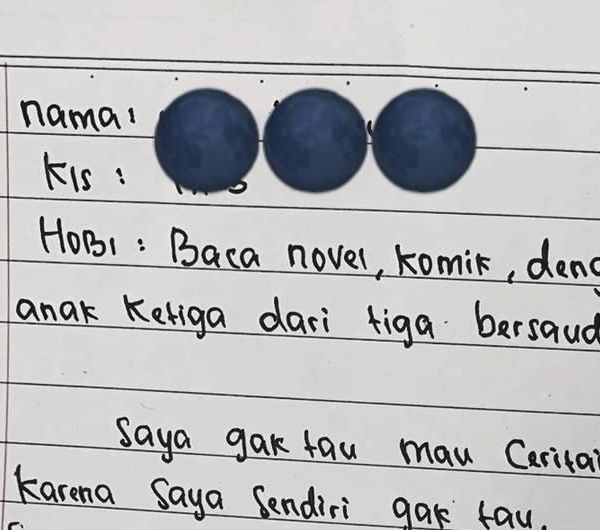 nama:
Kls :
HoBi : Baca novel, komik, deng
anak Ketiga dari tiga bersaud
Saya gak tau mau Ceritai
Karena Saya Sendiri gak tau